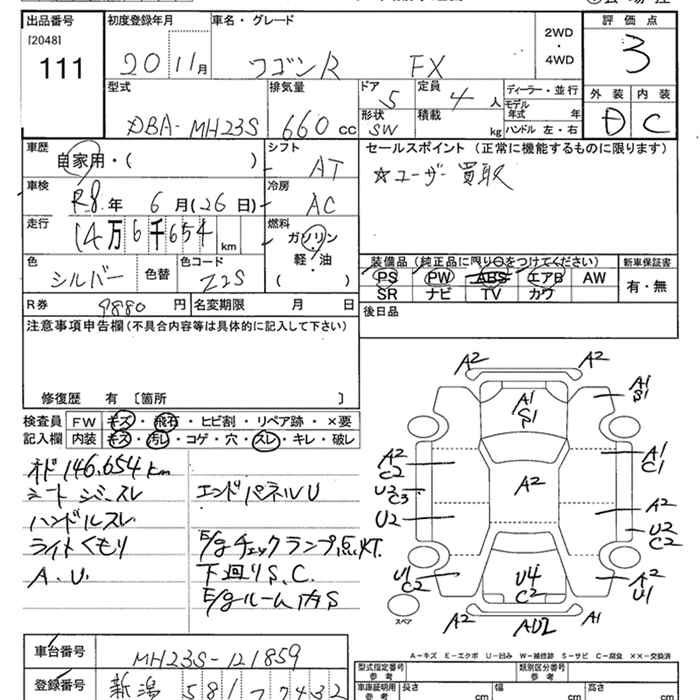 出品番号 初度登録年月 車名・グレード 2WD・4WD 評価点
[2048]
111 20 11月 ワゴンR FX 3
型式 排気量 ドア 5 定員 4人 ディーラー・並行 外装 内装
DBA-MH23S 660cc 形状 SW 積載 kg モデル年式 年 D C
ハンドル 左・右
車歴 自家用・( ) シフト AT セールスポイント (正常に機能するものに限ります)
車検 R8年 6月(26日) 冷房 AC ☆ユーザー買取
走行 14万6千654km 燃料 ガソリン・軽・油 ( )
色 シルバー 色替 色コード Z2S
装備品 (純正品に限り○をつけてください) 新車保証書
PS PW ABS エアB AW 有・無
SR ナビ TV カワ
R券 9880円 名変期限 月 日 後日品
注意事項申告欄(不具合内容等は具体的に記入して下さい)
修復歴 有 〔箇所 〕
検査員記入欄 FW キズ・飛石・ヒビ割・リペア跡・×要
内装 キズ・汚レ・コゲ・穴・スレ・キレ・破レ
オド146,654km
シートジミスレ エンドパネルU
ハンドルスレ
ライトくもり E/gチェックランプ点灯.
A.U. 下廻りS.C.
E/gルーム内S
A2 A2
A1 S1 A1 S1
A2 C2 A1 C1
A2
U2 C3
U2 A2
U2 C2
U1 C2 U4 C2 A2 U1
スペア A2 AU2 A1
A-キズ E-エクボ U-凹み W-補修跡 S-サビ C-腐食 ××-交換済
車台番号 MH23S-121859
型式指定番号 参考 類別区分番号 参考
登録番号 新潟 581 7432
車庫証明用 参考 長さ cm 幅 cm 高さ cm